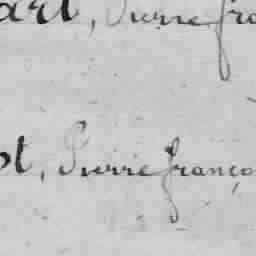 art, Pierre fra
ot, Pierre franço